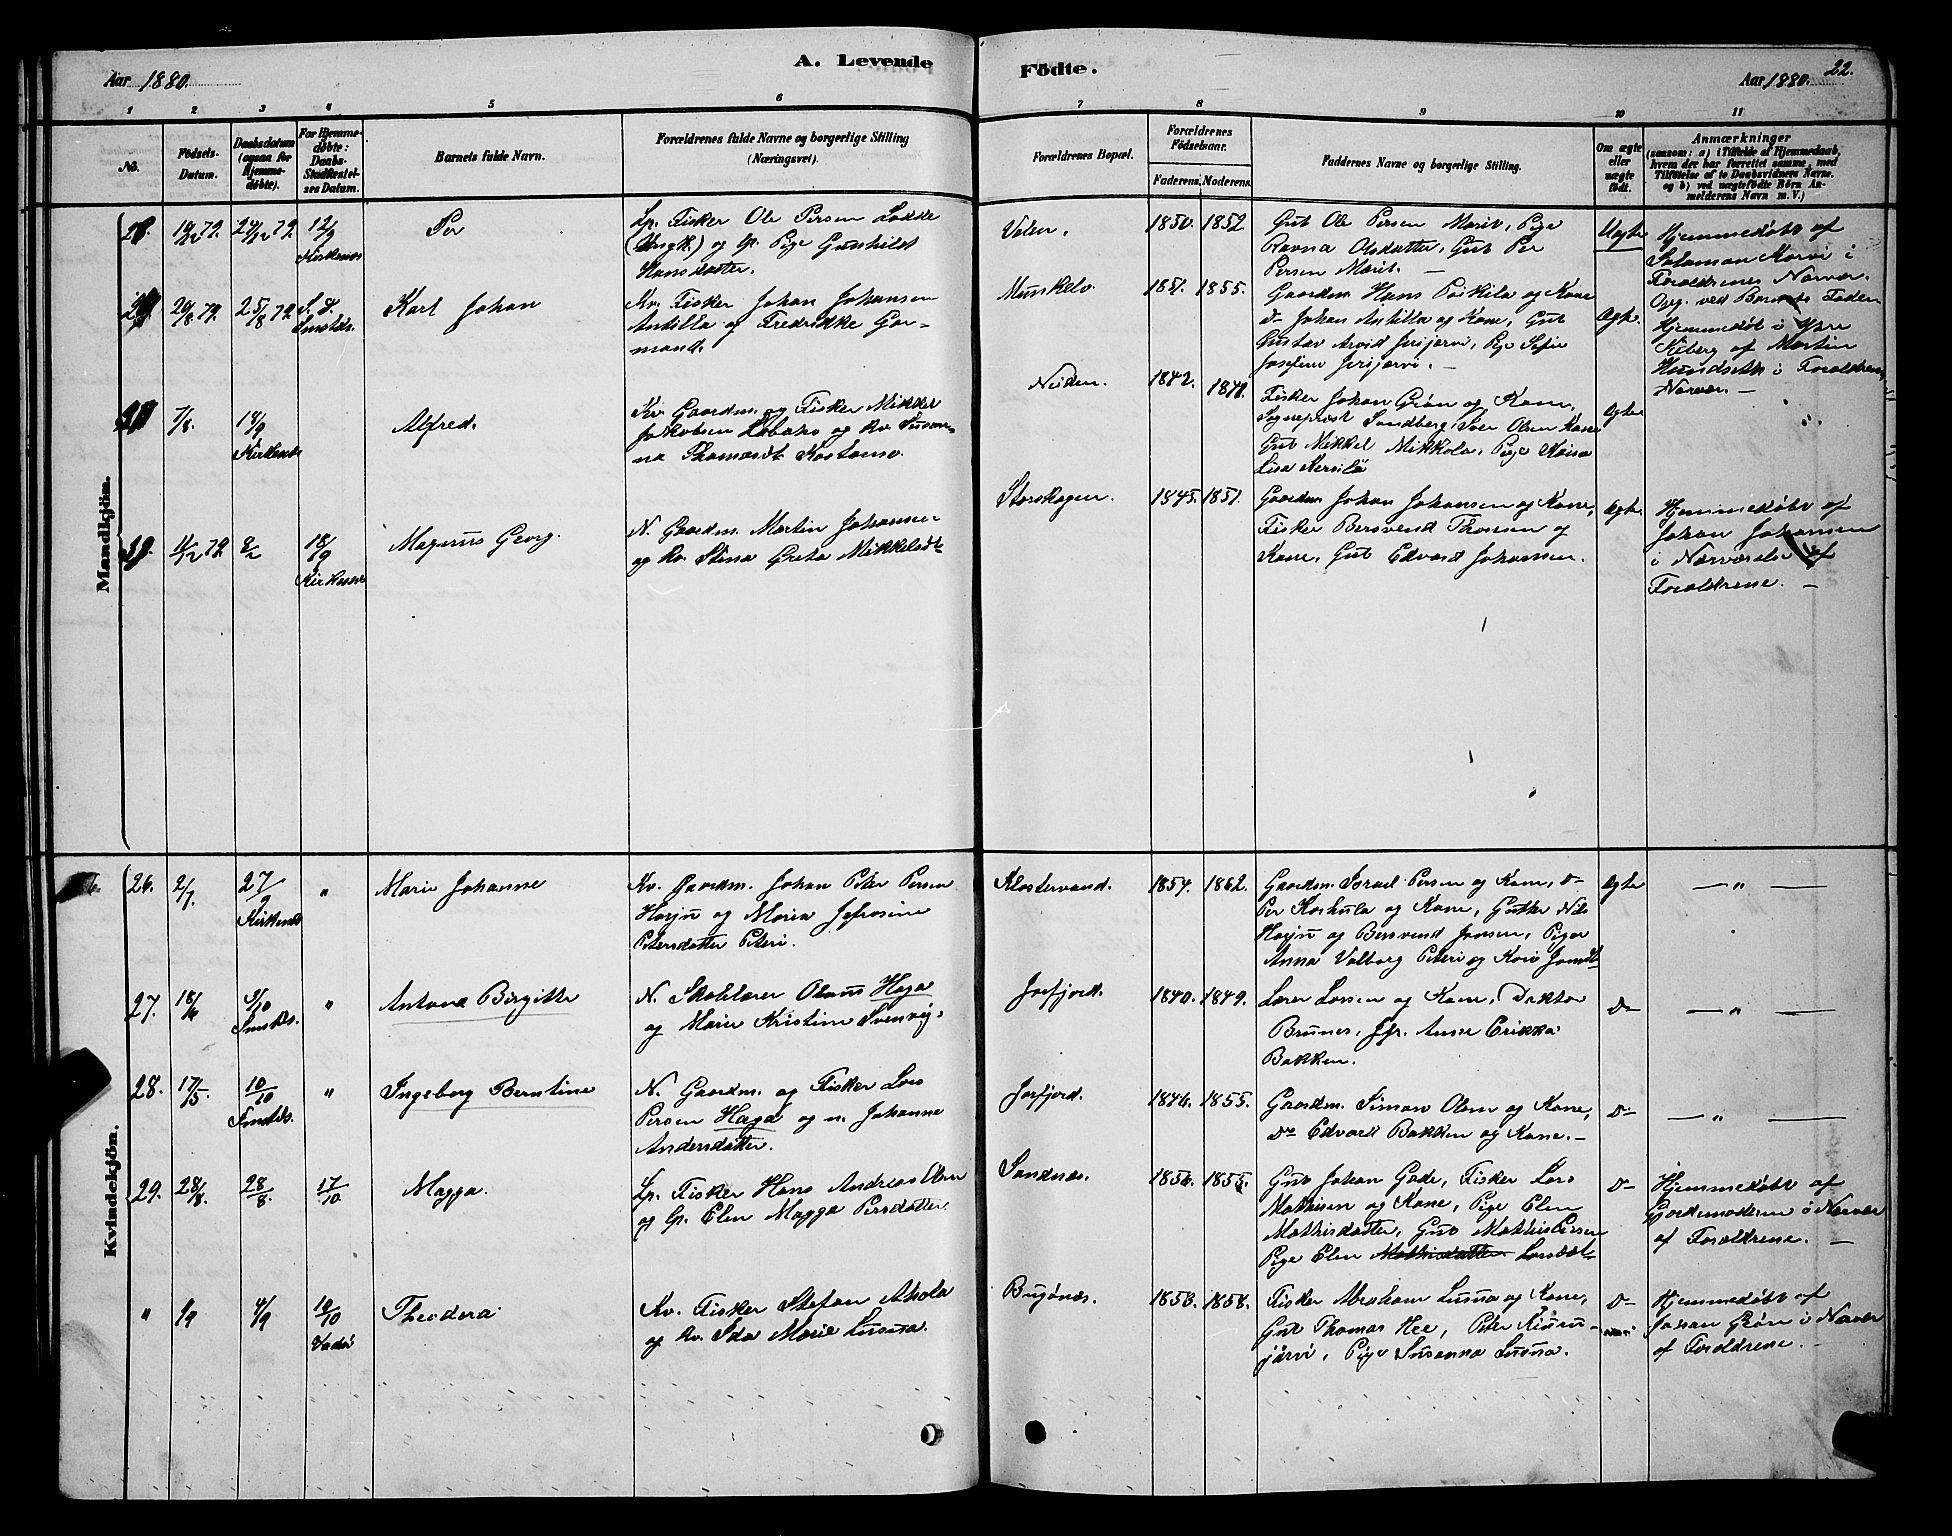 A. Levende
Födte.
Aar 1880.
Aar 1880.
22.
1 2 3 4 5 6 7 8 9 10 11
No.
Fødsels-
Datum.
Daabsdatum
(ogsaa for
Hjemme-
døbte).
For Hjemme-
døbte:
Daabs-
Stadfæstel-
ses Datum.
Barnets fulde Navn.
Forældrenes fulde Navne og borgerlige Stilling
(Næringsvei).
Forældrenes Bopæl.
Forældrenes
Födselsaar.
Faderens. Moderens.
Faddernes Navne og borgerlige Stilling.
Om ægte
eller
uægte
födt.
Anmærkninger
(saasom: a) i Tilfælde af Hjemmedaab,
hvem der har forrettet samme, med
Tilföielse af to Daabsvidners Navne.
og b) ved uægtefödte Börn An-
melderens Navn m. V.)
Mandkjön.
12/9
Kirkenes
Per
Lp. Fisker Ole Persen
(Ungk.) og lp. Pige Gunhild
Hansdatter.
1850. 1852.
Gut Ole Persen Marit, Pige
Ravna Olsdatter, Gut Per
Persen Marit. —
Uægte
Hjemmedøbt af
Salaman Korvi i
Forældrenes Nærvær.
Opg. ved Barnets Fader
25/8 79
Karl Johan
Kv. Fisker Johan Johansen
Antilla og Fredrikke Gor-
mand.
Munkelv.
1851. 1855.
Gaardm. Hans Påikila og Kone
do Johan Antilla og Kone, Gut
Gustav Arvid Jerijærvi, Pige Sofie
Josefine Jerijærvi. —
Ægte.
Hjemmedøbt i
Kiberg af Martin
i Forældrenes
Nærvær. —
7/8.
18/9
Kirkenes
Alfred.
Kv. Gaardm. og Fisker Mikkel
Jakobsen og kv. Susan-
na Thomasdt. Kostamo.
Neiden.
1842. 1848.
Fisker Johan Grøn og Kone,
Sogneprest Sandberg, Iver Olsen Kone
Gut Mikkel Mikkola, Pige Kaisa
Lisa Kersilä
Ægte
18/9
Kirkenes
Magnus Georg.
N. Gaardm. Martin Johansen
og kv. Stina Greta Mikkelsdt
Storskogen.
1845. 1851.
Gaardm. Johan Johansen og Kone,
Fisker Bersvend Thoresen og
Kone, Gut Edvard Johansen.
Ægte.
Hjemmedøbt af
Johan Johansen
i Nærværelse af
Forældrene. —
Kvindekjön.
26. 2/7. 27/9
Kirkenes
"
Marie Johanne
Kv. Gaardm. Johan Peter Persen
Harju og Maria Jefrosine
Petersdatter Peteri.
Klostervand.
1854. 1862.
Gaardm. Israel Persen og Kone, do
Per Koskula og Kone, Gutter Nils
Harju og Bersvend Jansen, Piger
Anna Valborg Peteri og Kaisa
Ægte
— " —
27. 18/6 3/10
"
Antona Birgitte
N. Skolelærer Olaus Haga
og Marie Kristine Svenvig.
Jarfjord.
1840. 1849.
Lærer Larsen og Kone, Doktor
Brunes, Jfr. Anne Erikka
Bakken.
do
— " —
28. 17/5 10/10
"
Ingeborg Berntine
N. Gaardm. og Fisker Lars
Persen Haga og n. Johanne
Andersdatter.
Jarfjord.
1846. 1855.
Gaardm. Simon Olsen og Kone,
do Edvard Bakken og Kone. —
do
— " —
29. 28/8. 28/8 17/10
Magga.
Lp. Fisker Hans Andreas Olsen
og lp. Elen Magga Persdatter.
Sandnes.
1856. 1855.
Gut Johan Gade, Fisker Lars
Mathisen og Kone, Pige Elen
Mathisdatter, Gut Mathis Persen
Pige Elen Mathisdatter Larsdt
do
Hjemmedøbt af
Gjordemoderen i Nærvær
af Forældrene. —
" 1/9 4/9 10/10
Vadsø
Theodora
Kv. Fisker Stefan Ahola
og kv. Ida Marie Lusua.
Bugønes.
1853. 1858.
Fisker Abraham Lusua og Kone,
Gut Thomas Hee, Peter Kiuru-
järvi, Pige Susanna Lusua.
do
Hjemmedøbt af
Johan Grøn i Nærvær
af Forældrene. —